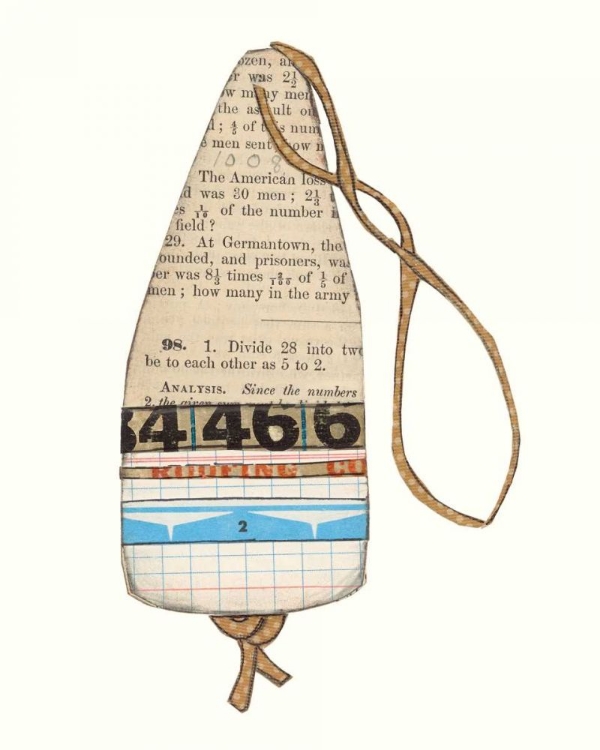 ozen, an
r was 2½
w many men
the assault on
d; ⅘ of this num
e men sent, how n
1008
The American loss
d was 30 men; 2⅓
es 1/16 of the number i
field?
29. At Germantown, the
ounded, and prisoners, was
er was 8⅓ times 2/100 of ⅕ of
men; how many in the army
98. 1. Divide 28 into two
be to each other as 5 to 2.
ANALYSIS. Since the numbers
2, the given sum must be
34 46 6
ROOFING CO
2